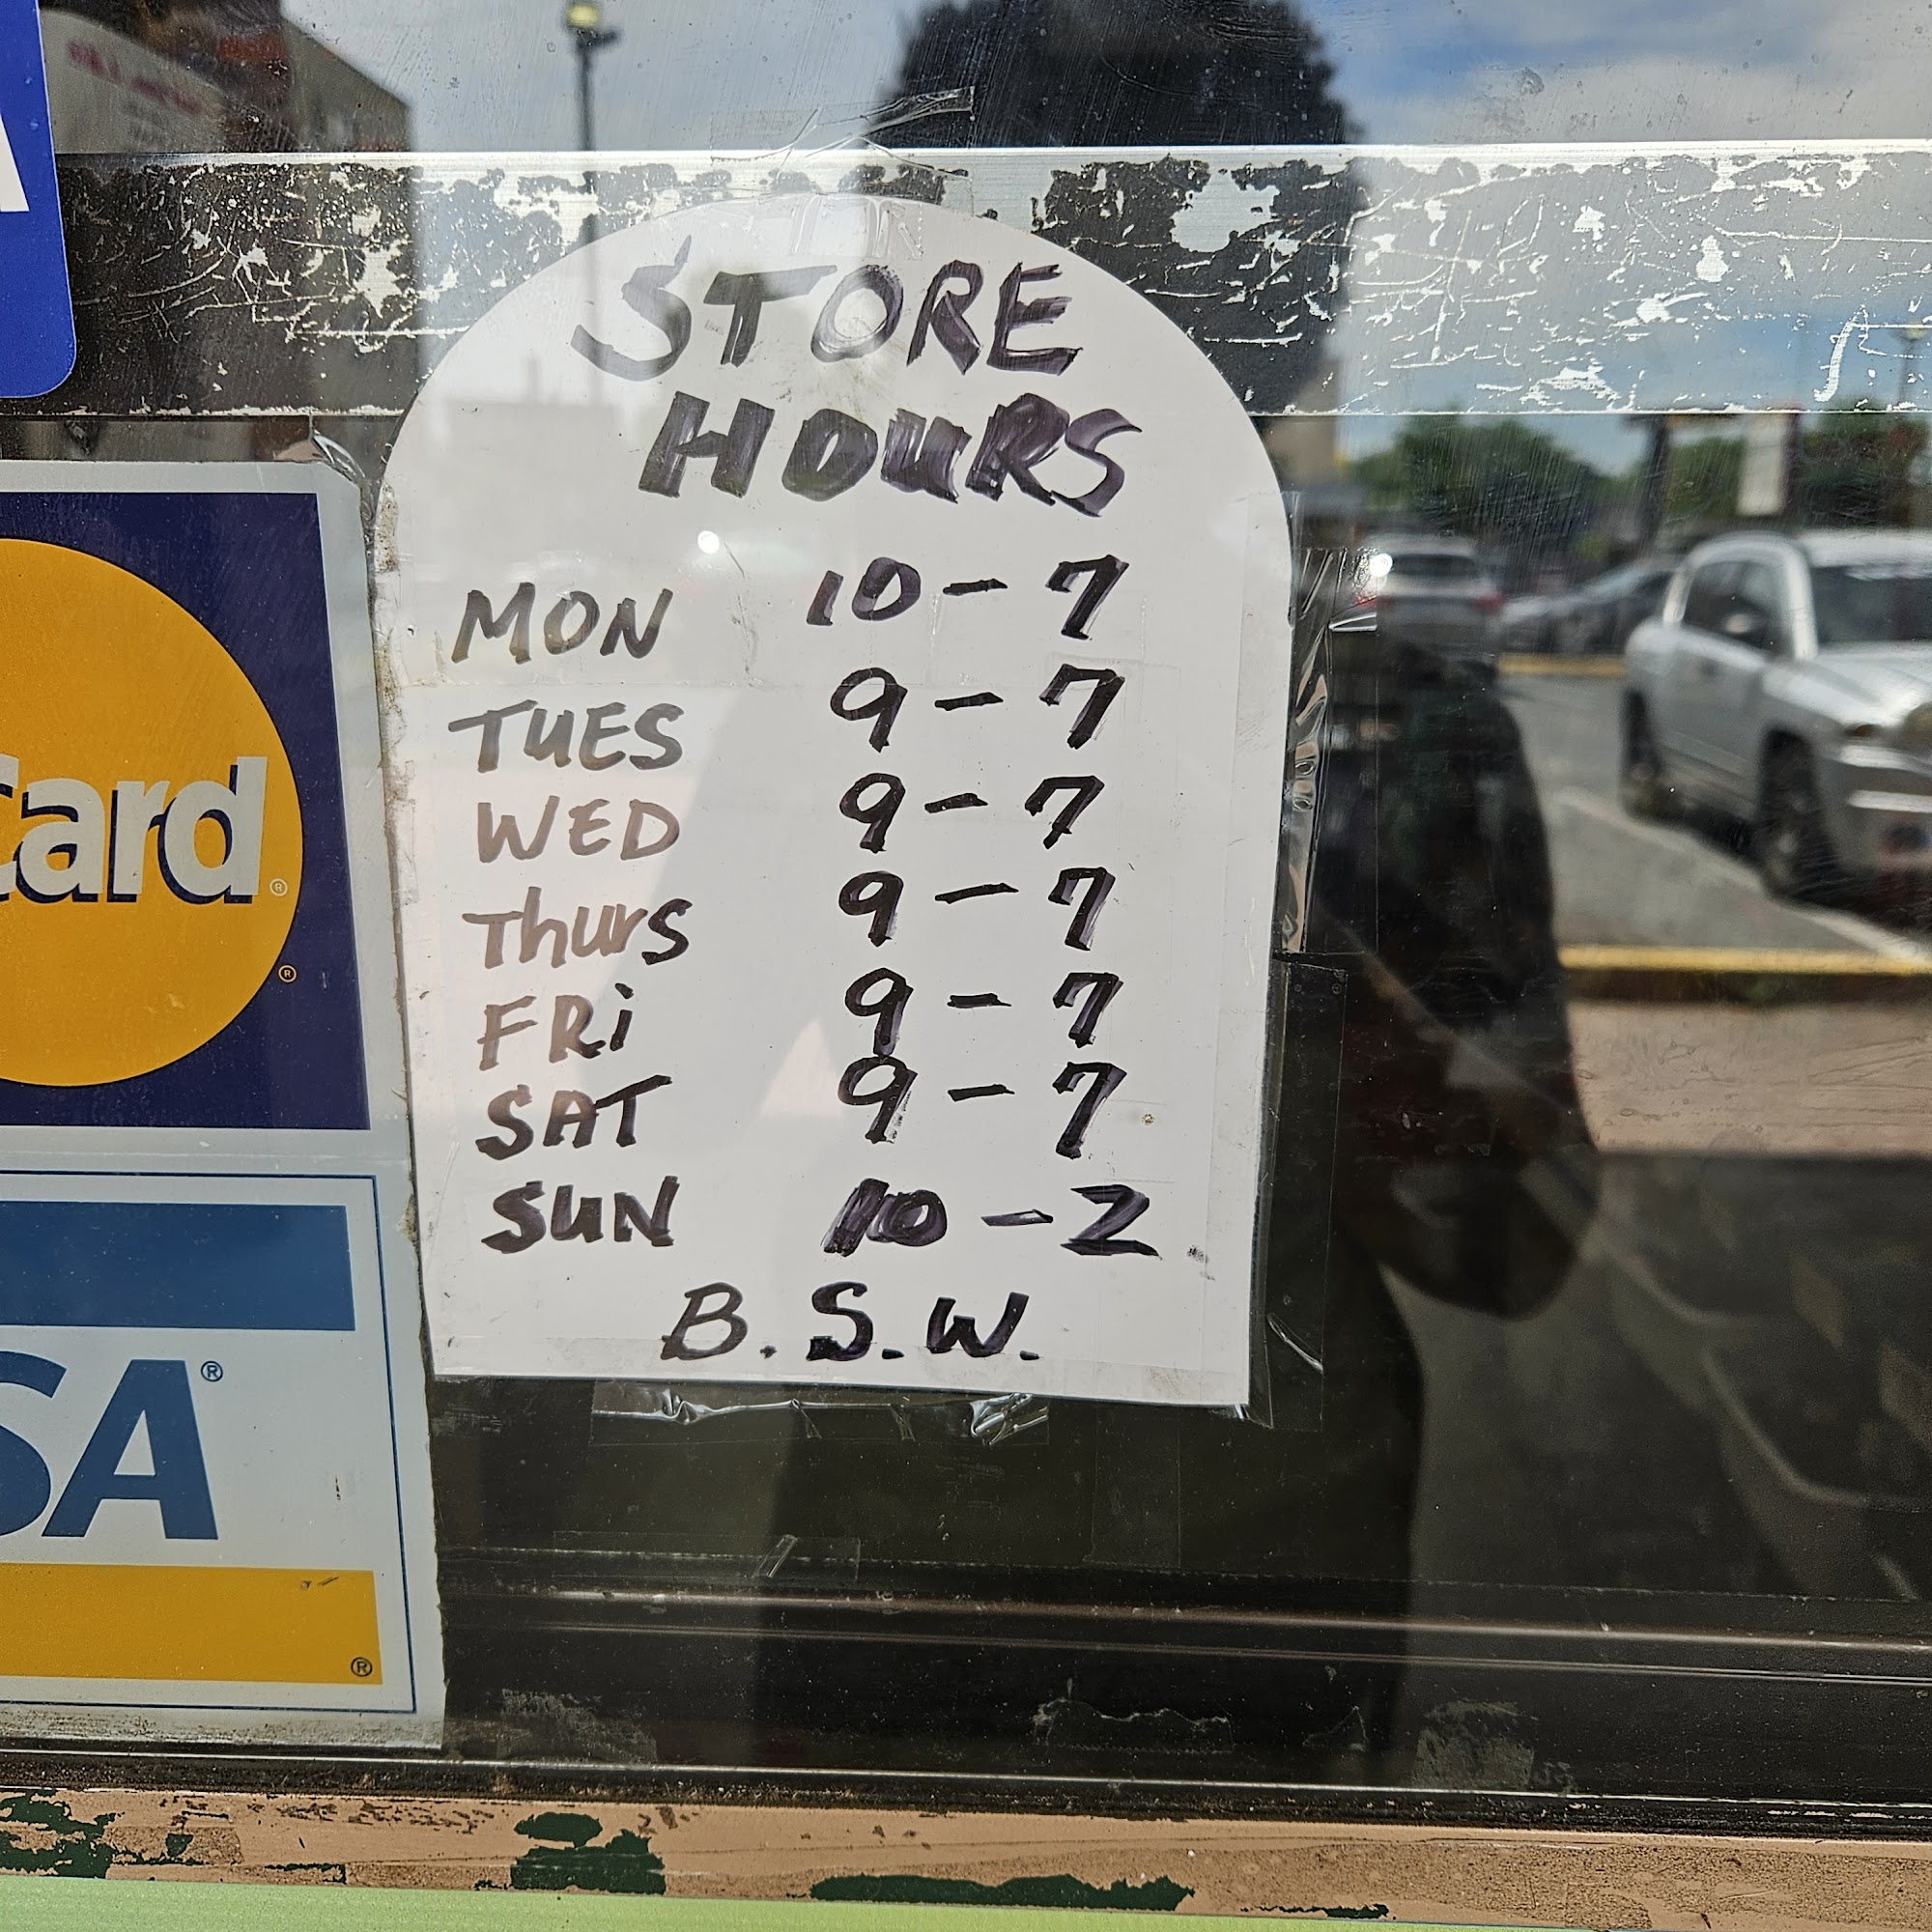 STORE
HOURS
MON 10 - 7
TUES 9 - 7
WED 9 - 7
Thurs 9 - 7
FRi 9 - 7
SAT 9 - 7
SUN 10 - 2
B. S. W.
Card®
®
SA®
®